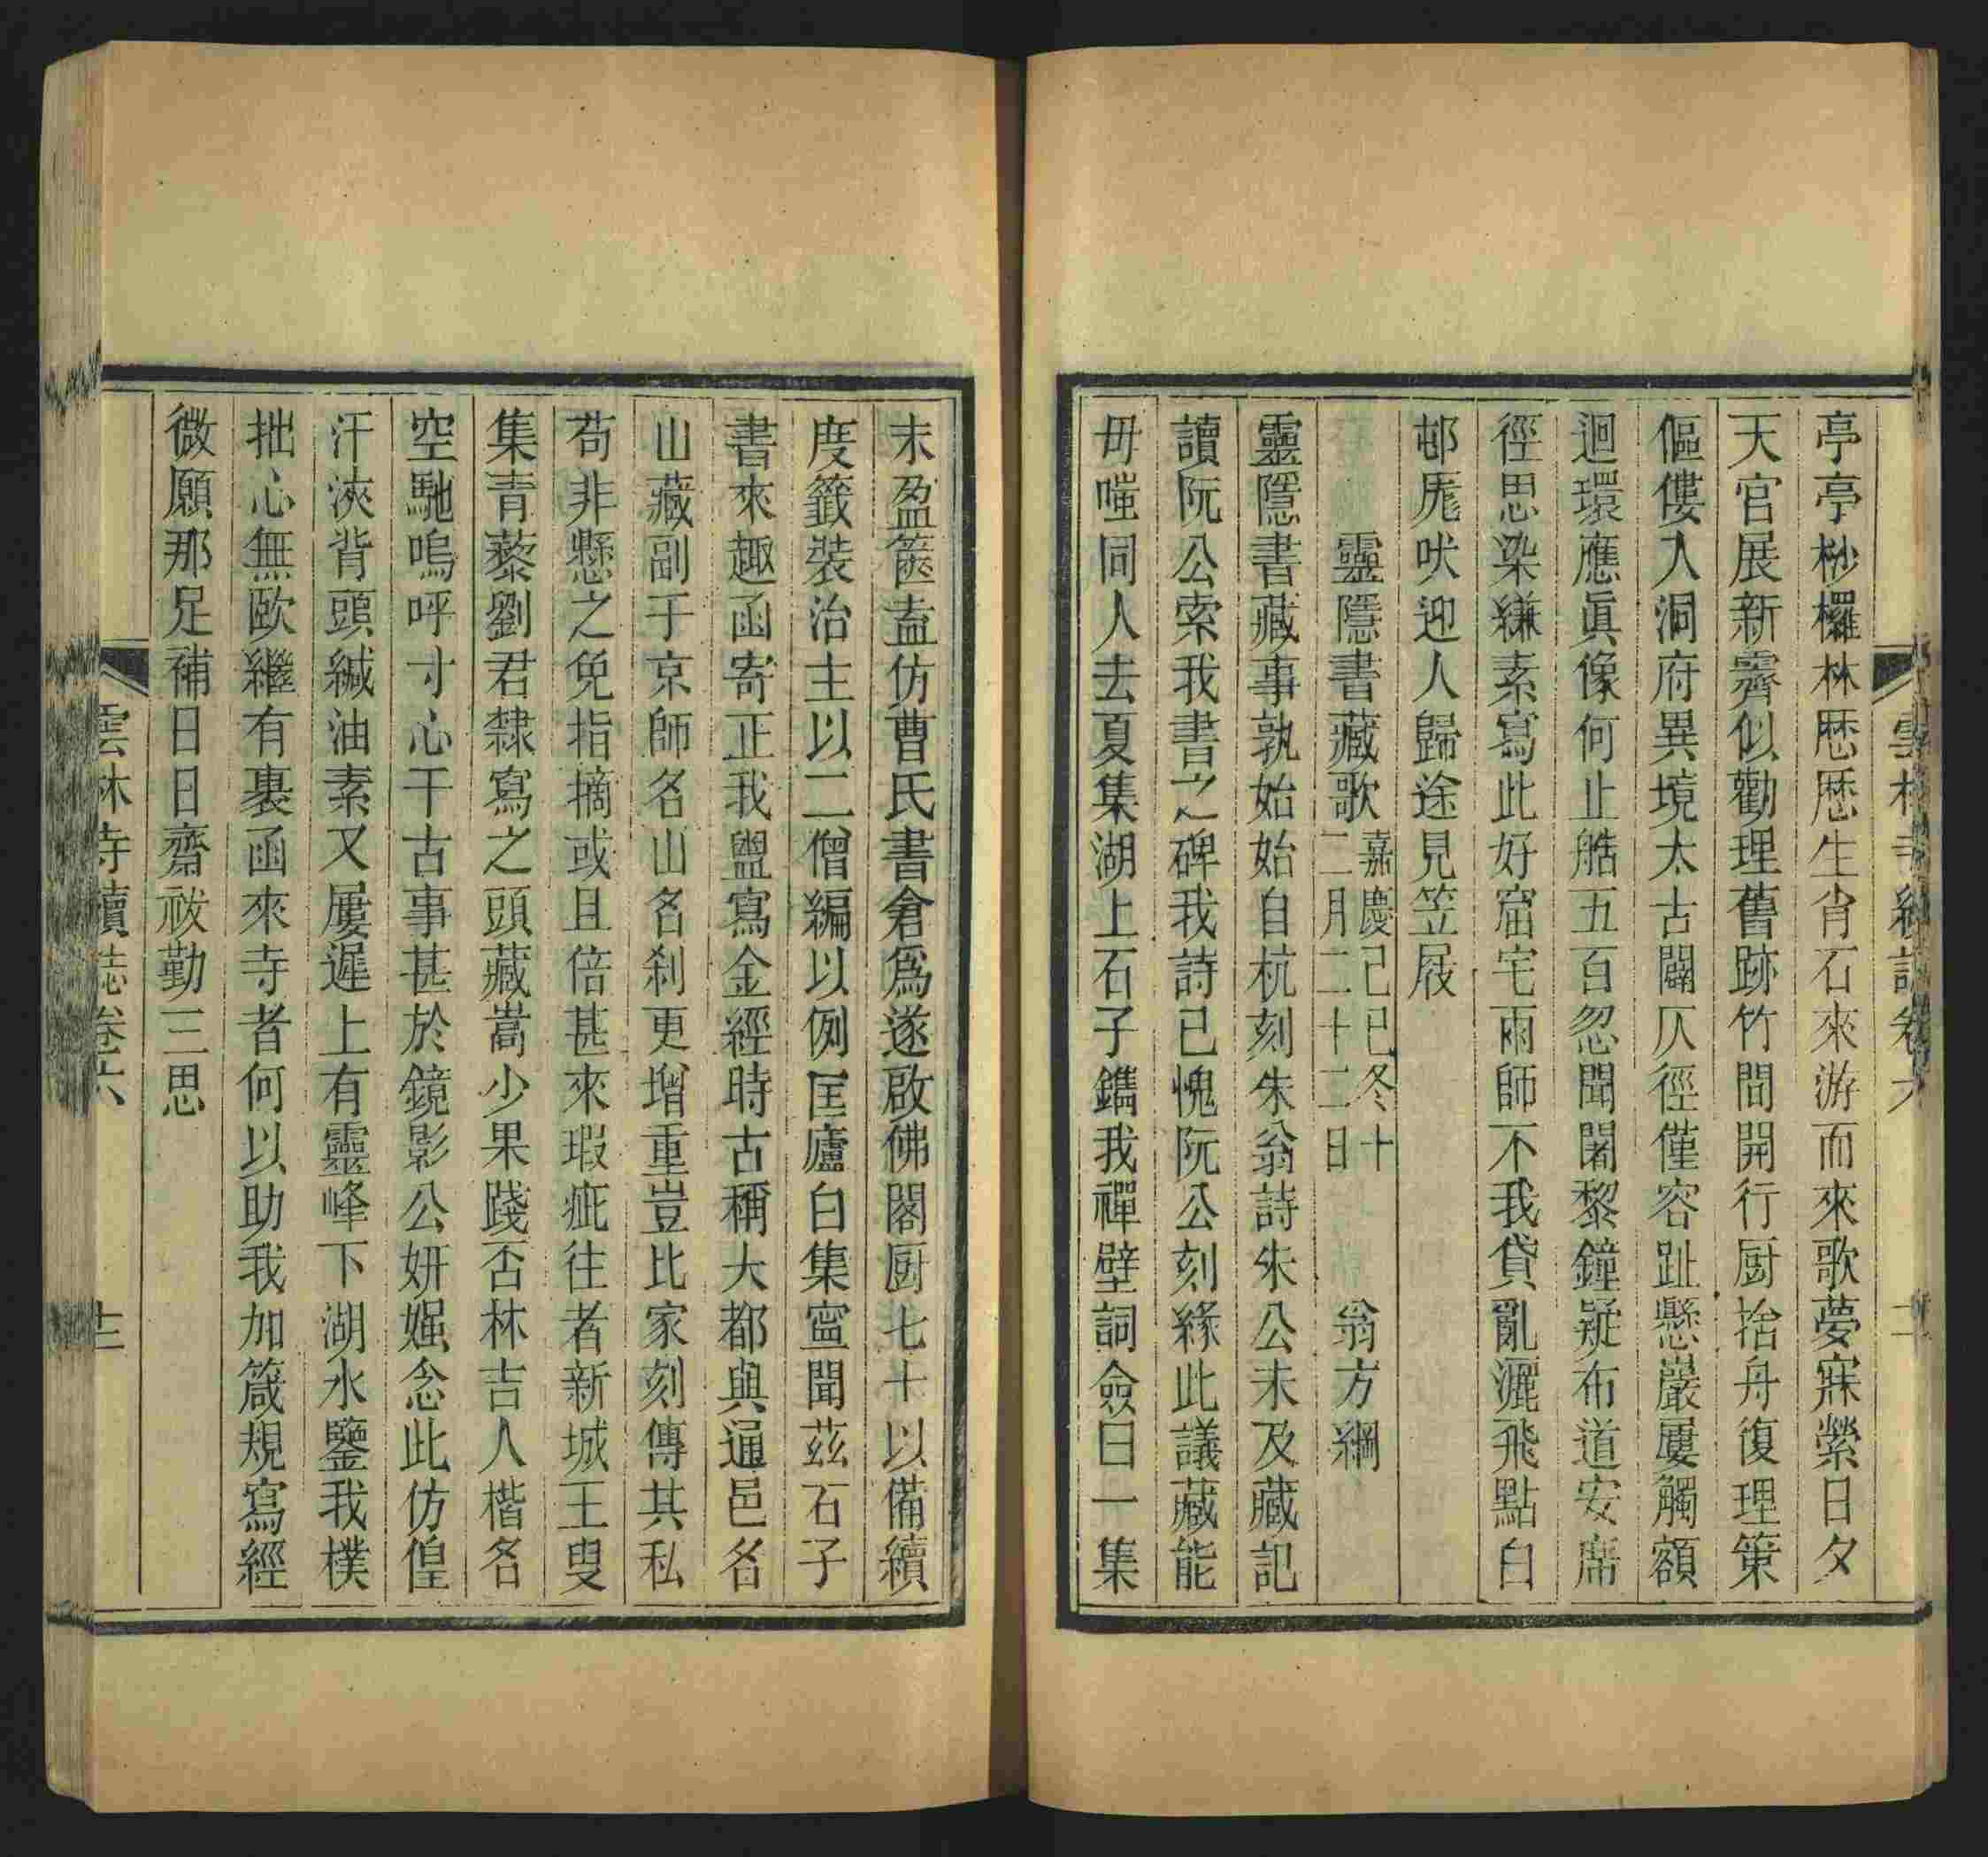 亭亭桫欏林歷歷生肖石來游而來歌夢寐縈日夕
天官展新霽似勸理舊跡竹間開行厨捨舟復理策
傴僂入洞府異境太古闢仄徑僅容趾懸巖屢觸額
迴環應眞像何止艁五百忽聞闍黎鐘疑布道安席
徑思染縑素寫此好窟宅雨師不我貸亂灑飛點白
邨厖吠迎人歸途見笠屐
靈隱書藏歌嘉慶己巳冬十二月二十二日 翁方綱
靈隱書藏事孰始始自杭刻朱翁詩朱公未及藏記
讀阮公索我書之碑我詩已愧阮公刻緣此議藏能
毋嗤同人去夏集湖上石子鐫我禪壁詞僉曰一集
未盈篋盍仿曹氏書倉爲遂啟佛閣厨七十以備續
度籤裝治主以二僧編以例匡廬白集寧聞茲石子
書來趣函寄正我盥寫金經時古稱大都與通邑名
山藏副于京師名山名刹更增重豈比家刻傳其私
苟非懸之免指摘或且倍甚來瑕疵往者新城王叟
集青藜劉君隸寫之頭藏嵩少果踐否林吉人楷名
空馳嗚呼寸心千古事甚於鏡影公妍媸念此仿偟
汗浹背頭緘油素又屢遲上有靈峰下湖水鑒我樸
拙心無歐繼有裹函來寺者何以助我加箴規寫經
微願那足補日日齋祓勤三思
雲林寺續誌卷六
十二